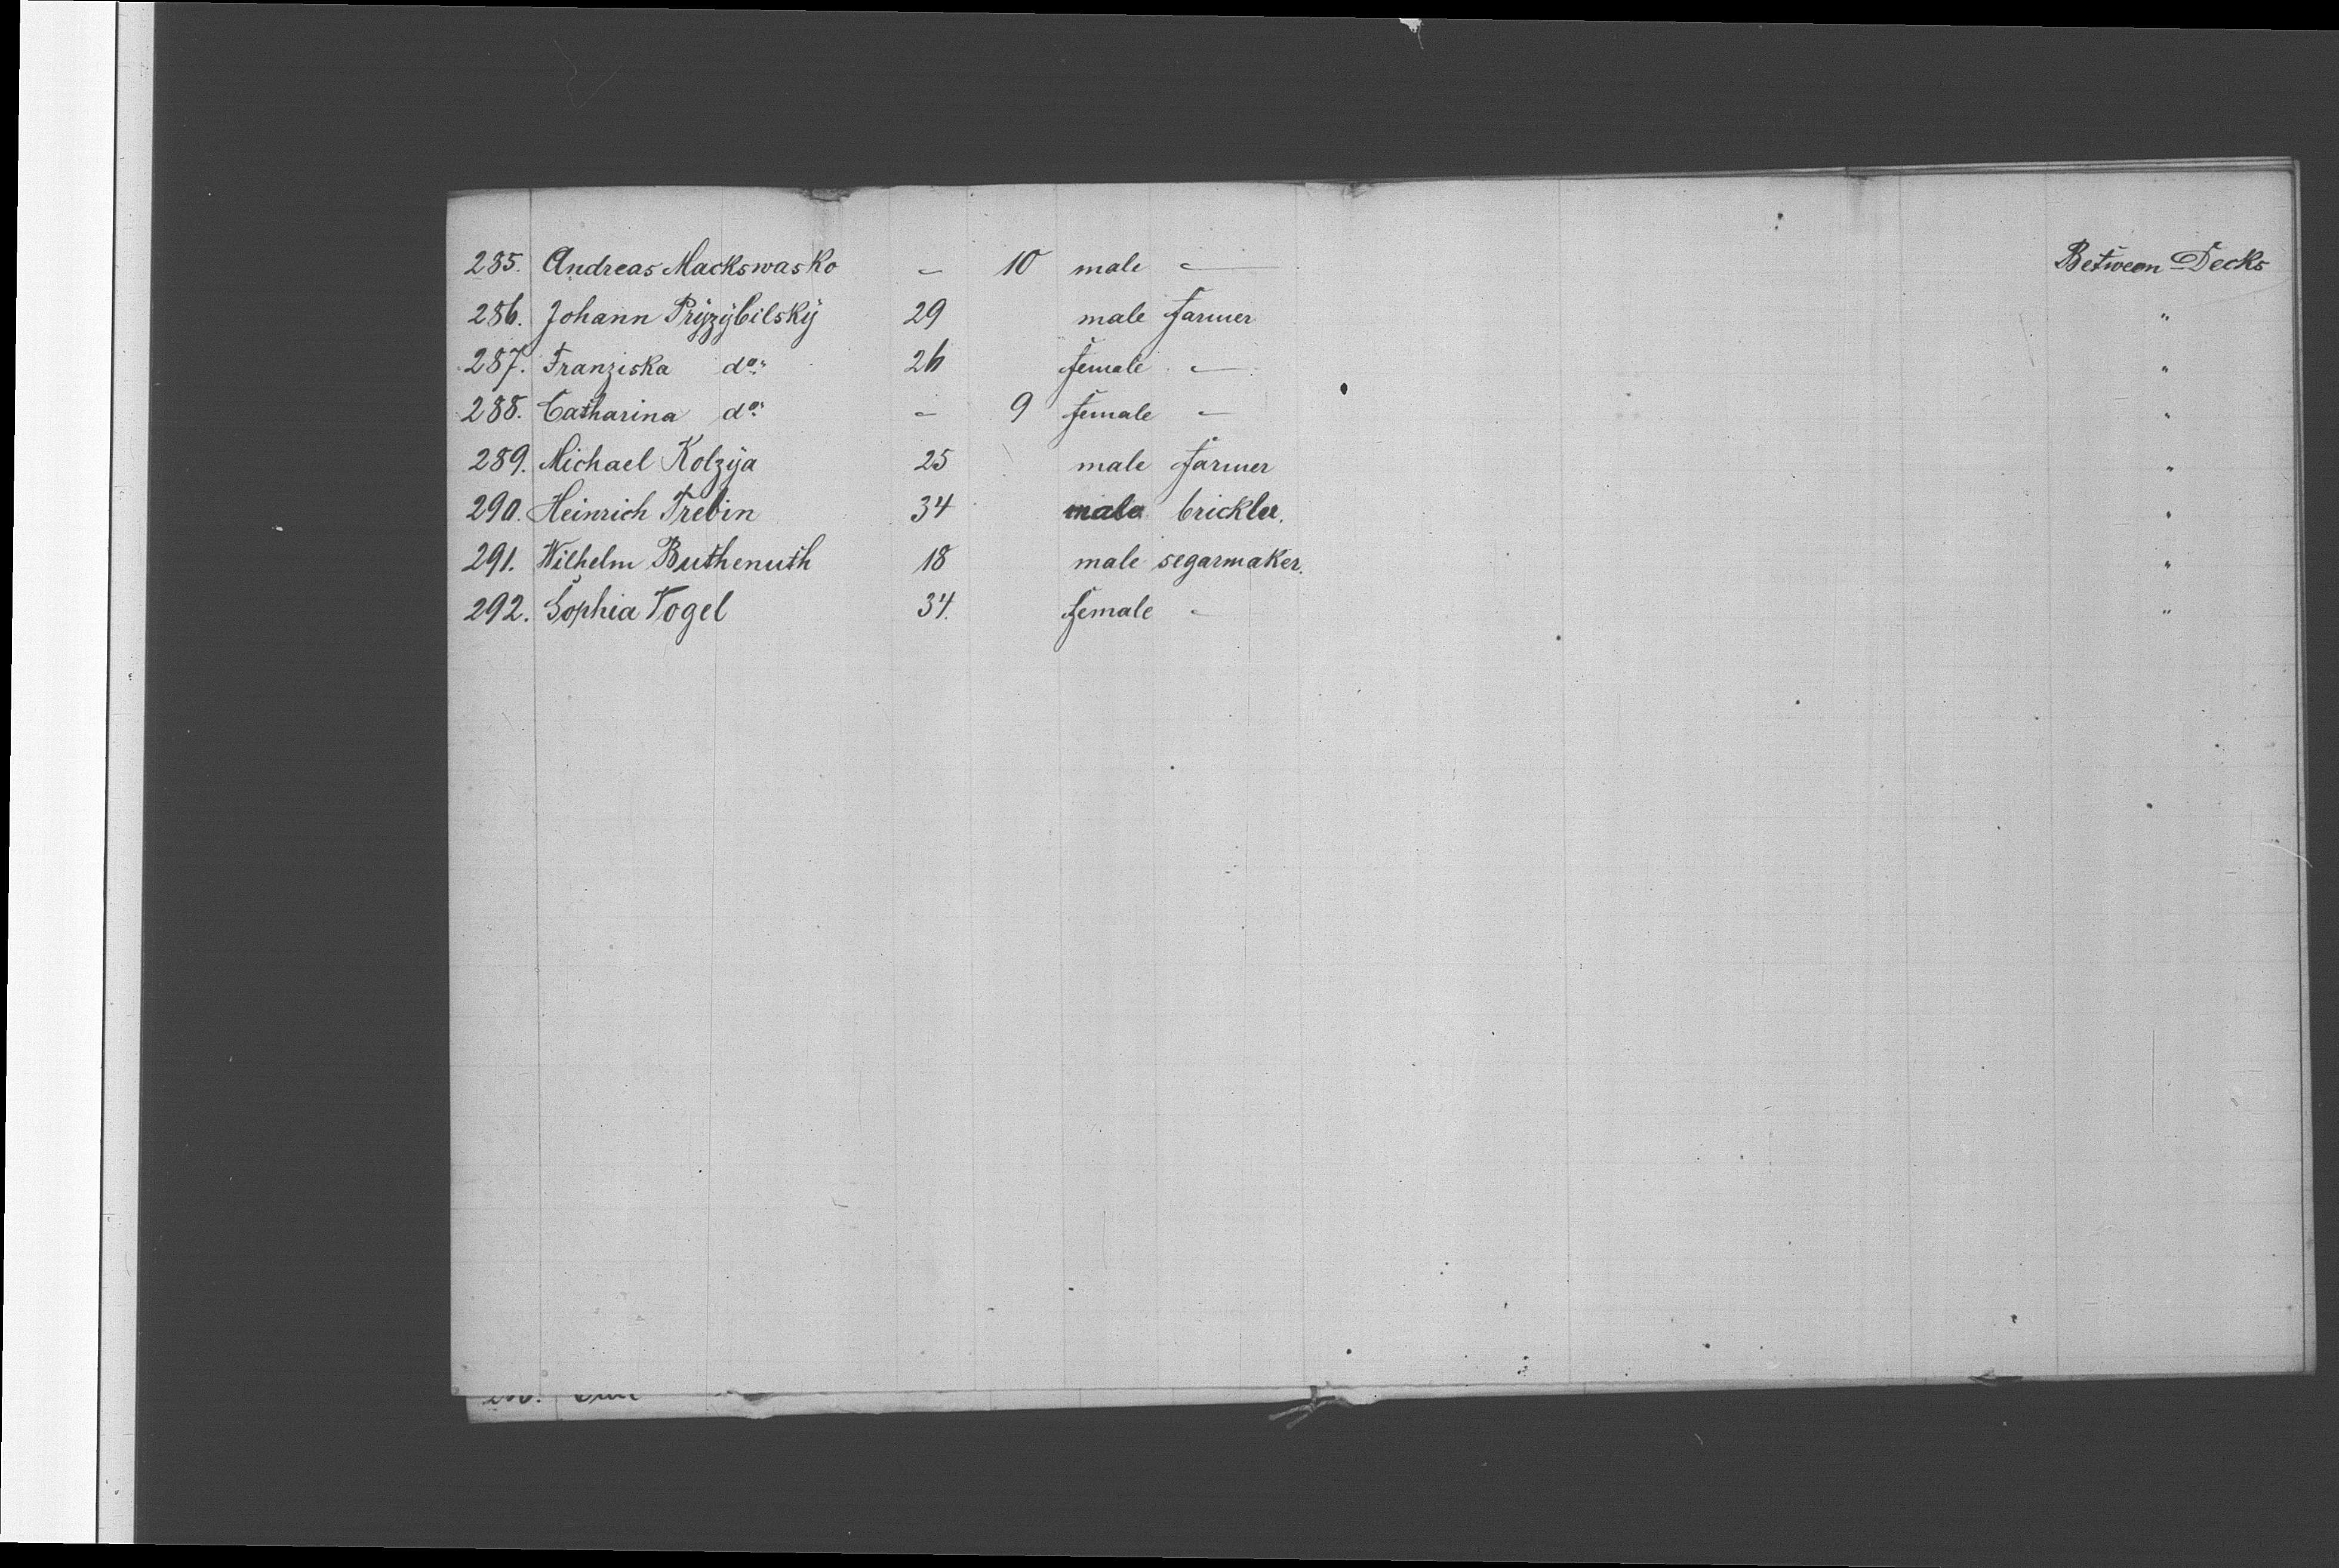 285. Andreas Mackswasko - 10 male - Between Decks
286. Johann Prÿzÿbilskÿ 29 male farmer "
287. Franziska do. 26 female - "
288. Catharina do. - 9 female - "
289. Michael Kolzÿa 25 male farmer "
290. Heinrich Trebin 34 male brickler. "
291. Wilhelm Buthenuth 18 male segarmaker. "
292. Sophia Vogel 34. female - "